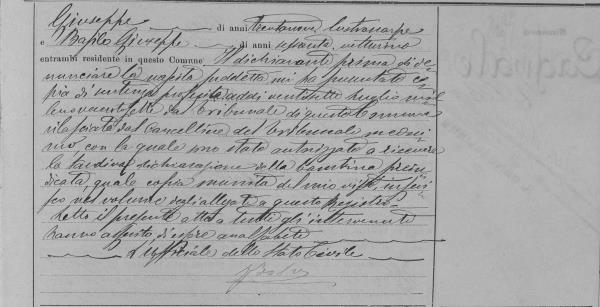 Giuseppe di anni trentanove, lustrascarpe
e Basile Giuseppe di anni sessanta, vetturino
entrambi residente in questo Comune Il dichiarante prima di de-
nunciare la nascita suddetta mi ha presentato co-
pia di sentenza proferita addì ventisette luglio mil
lenovecentosette dal Tribunale di questo Comune
rilasciata dal Cancelliere del Tribunale medesi-
mo, con la quale sono stato autorizzato a ricevere
la tardiva dichiarazione della bambina prein-
dicata, quale copia munita del mio visto, inseri-
sco nel volume degli allegati a questo registro.
Letto il presente atto a tutti gli intervenuti
hanno asserito d'essere analfabeti
L'uffiziale dello Stato Civile